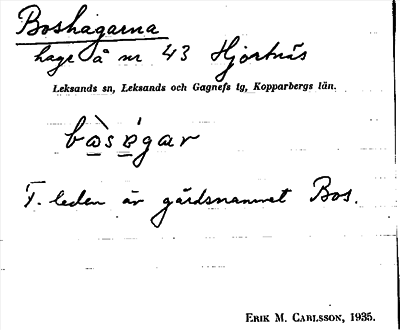 Boshagarna
hage å nr 43 Hjortnäs
Leksands sn, Leksands och Gagnefs tg, Kopparbergs län.
bɷ̀sɷ́gar
F. leden är gårdsnamnet Bos.
ERIK M. CARLSSON, 1935.